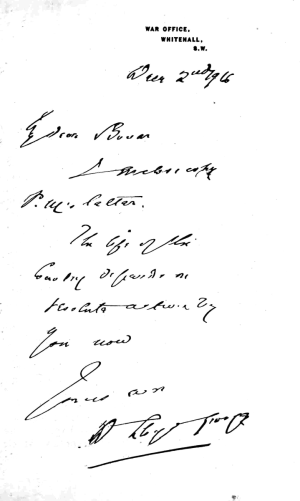 WAR OFFICE,
WHITEHALL,
S.W.
Decr 2nd 1916
My dear Bonar
I enclose copy
P.M's letter.
The life of this
Country depends on
resolute action by
you now
Yours ever
D Lloyd George